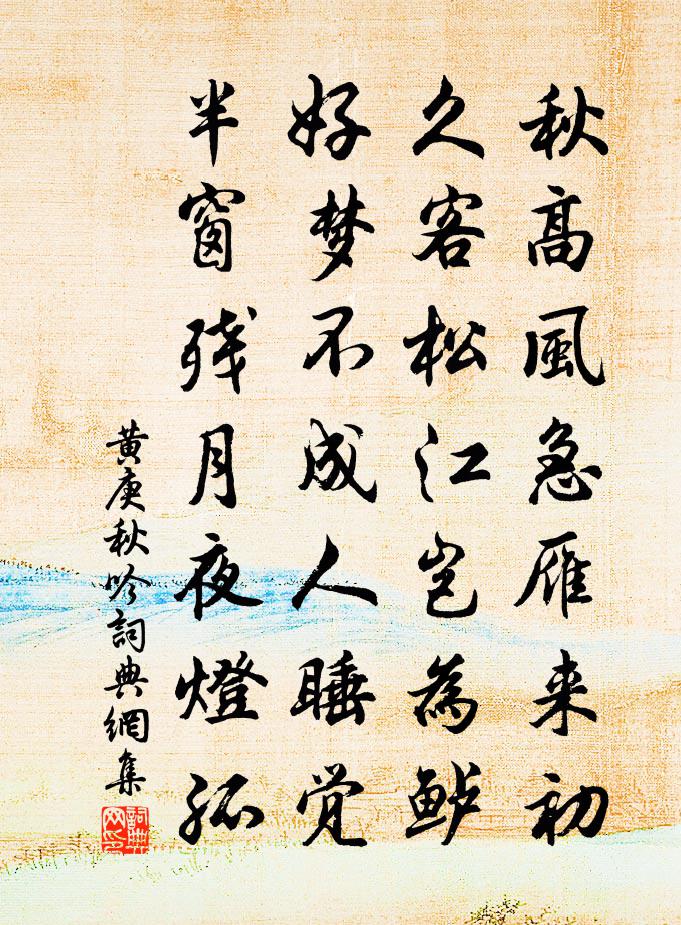 秋高風急雁来初
久客松江岂為鲈
好梦不成人睡觉
半窗残月夜燈孤
黄庚秋吟詞典網集
詞典网印